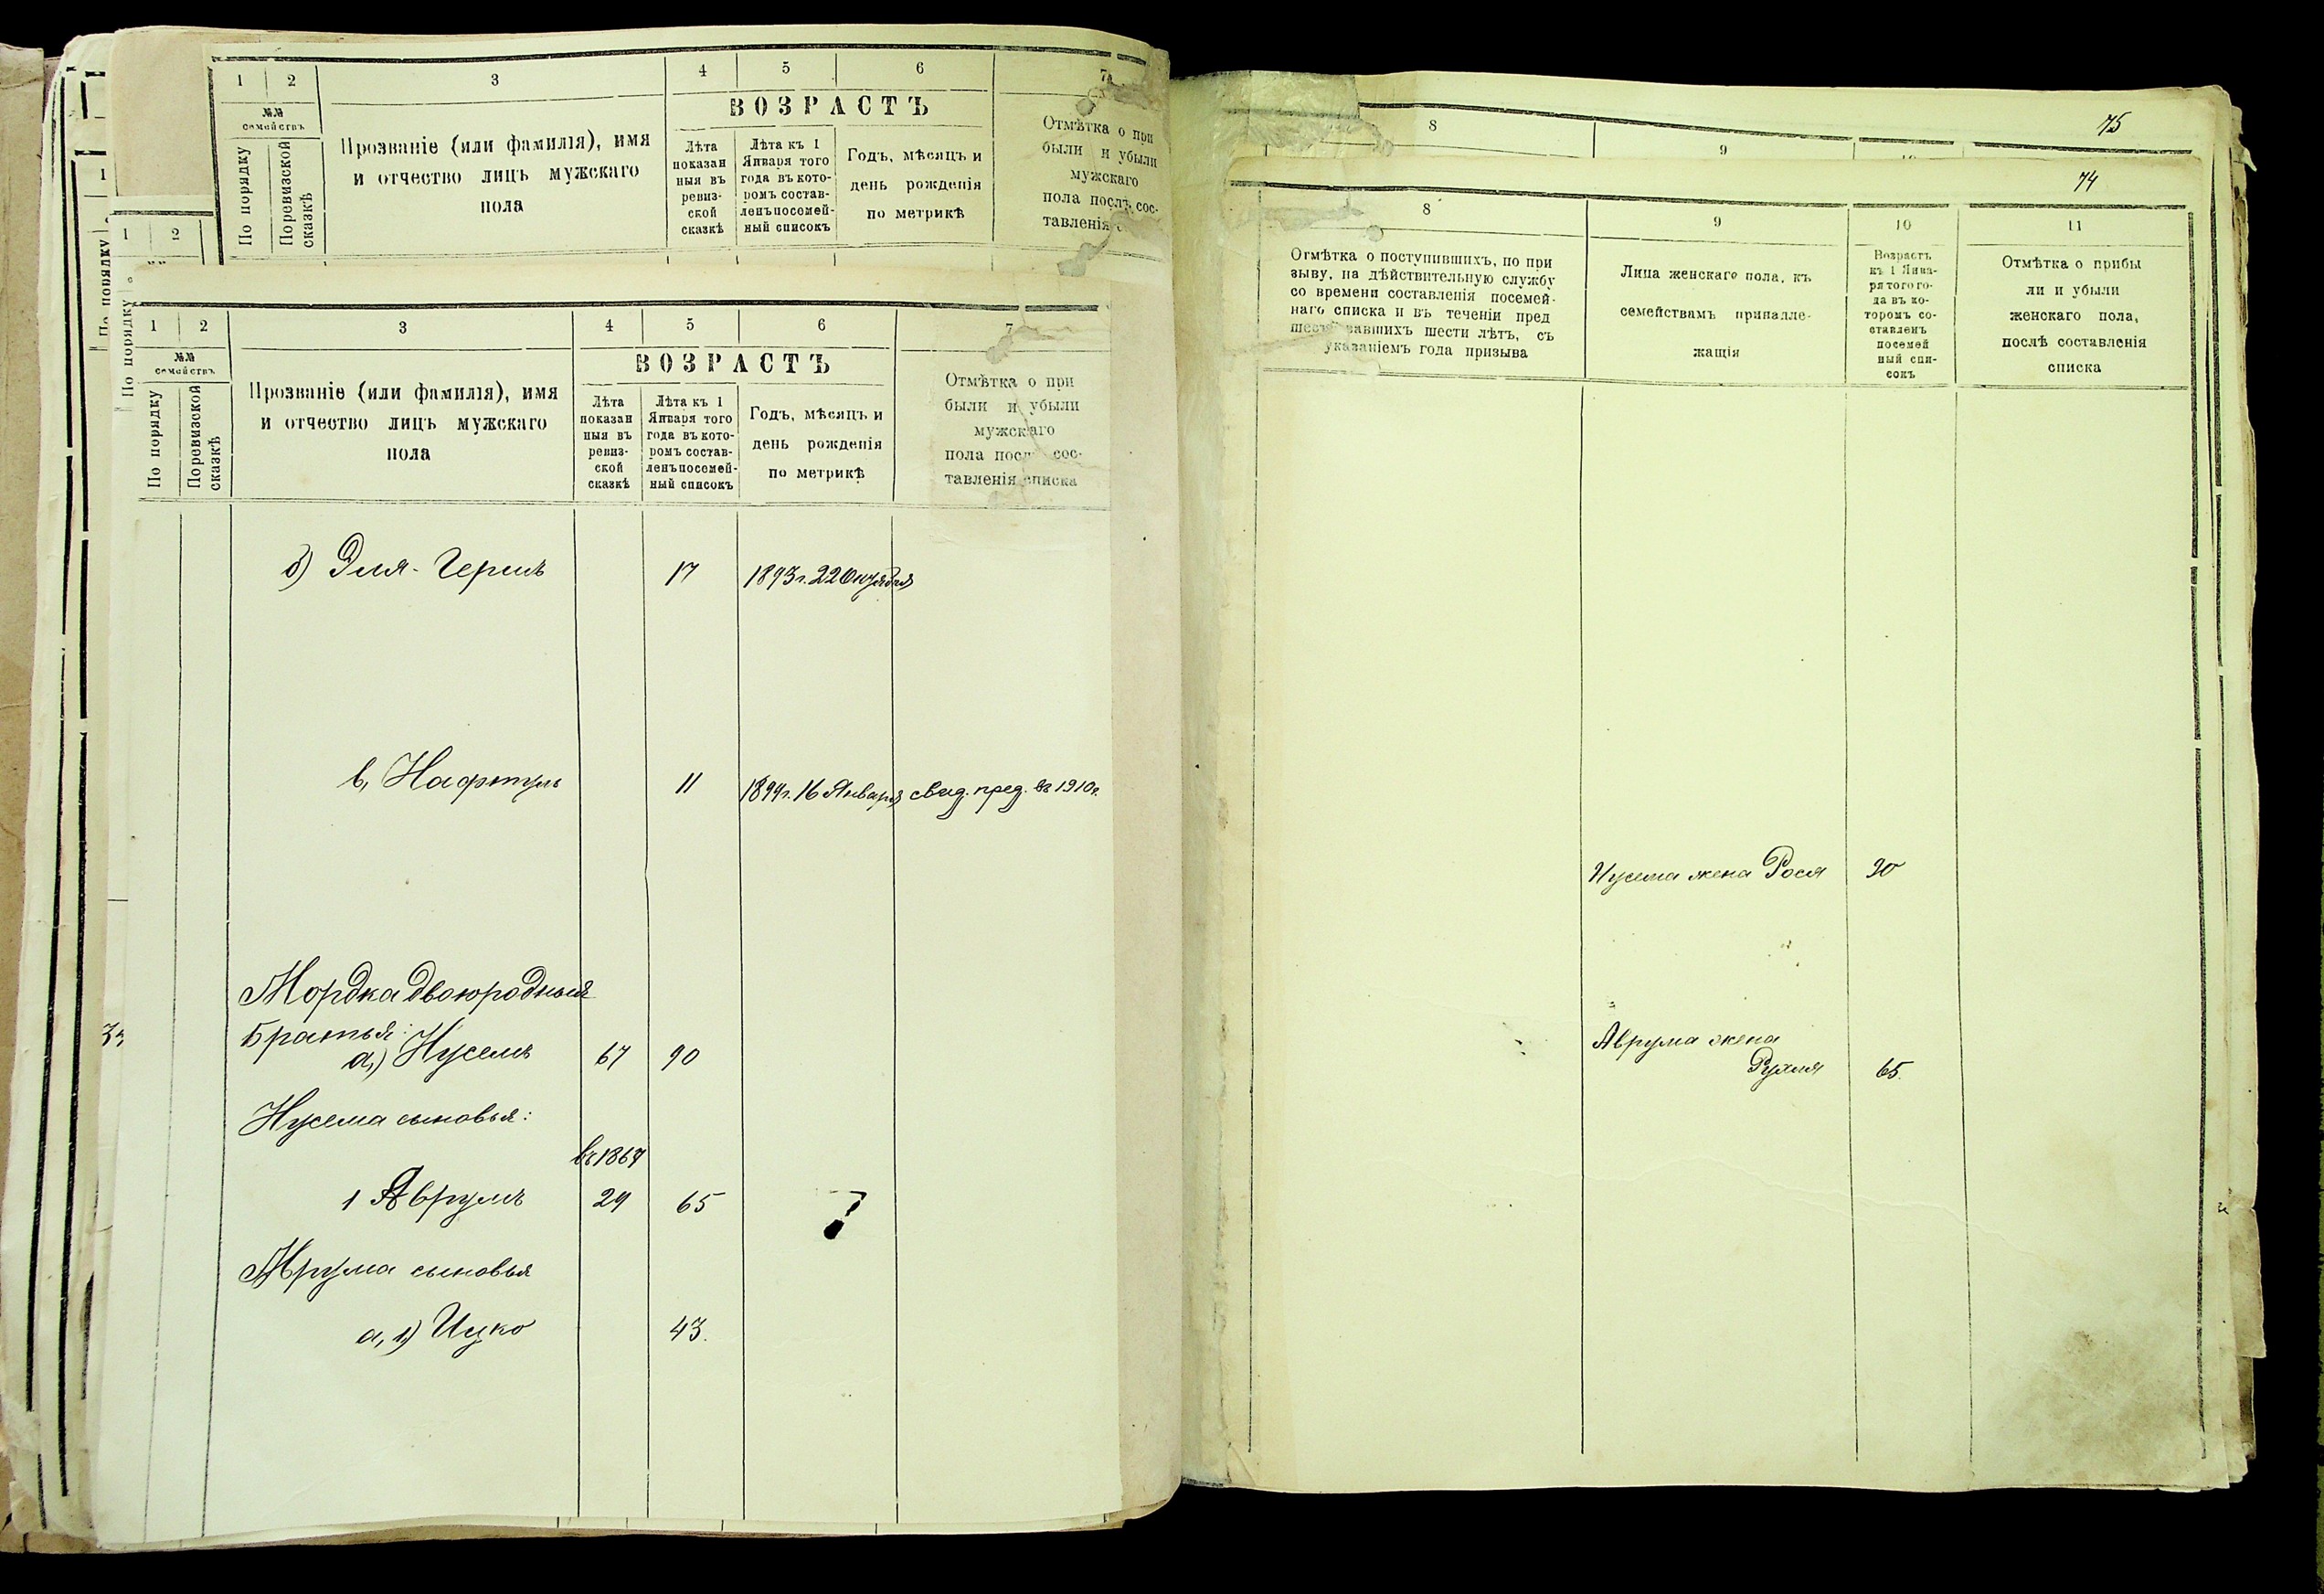 1 2 3 4 5 6 7
№№ семействъ
По порядку
Поревизской сказкѣ
Прозваніе (или фамилія), имя
и отчество лицъ мужскаго
пола
ВОЗРАСТЪ
Лѣта
показан
ныя въ
ревиз-
ской
сказкѣ
Лѣта къ 1
Января того
года въ кото-
ромъ состав-
ленъ посемей-
ный списокъ
Годъ, мѣсяцъ и
день рожденія
по метрикѣ
Отмѣтка о при
были и убыли
мужскаго
пола послѣ сос-
тавленія
1 2
По порядку
1 2 3 4 5 6 7
№№
семействъ
По порядку
Поревизской
сказкѣ
Прозваніе (или фамилія), имя
и отчество лицъ мужскаго
пола
ВОЗРАСТЪ
Лѣта
показан
ныя въ
ревиз-
ской
сказкѣ
Лѣта къ 1
Января того
года въ кото-
ромъ состав-
ленъ посемей-
ный списокъ
Годъ, мѣсяцъ и
день рожденія
по метрикѣ
Отмѣтка о при
были и убыли
мужскаго
пола сос-
тавленія списка
б) Эля-Гершъ 17 1893 г. 22 Октября
в, Нафтуль 11 1899 г. 16 Января свид. пред. въ 1910 г.
Мордка двоюродныя
братья:
а,) Нусемъ 67 90
Нусема сыновья:
въ 1867
1 Аврумъ 29 65 ?
Аврума сыновья
а, 1) Ицко 43.
75
8 9
74
8 9 10 11
Отмѣтка о поступившихъ, по при
зыву, на дѣйствительную службу
со времени составленія посемей-
наго списка и въ теченіи пред
шествовавшихъ шести лѣтъ, съ
указаніемъ года призыва
Лица женскаго пола, къ
семействамъ принадле-
жащія
Возрастъ
къ 1 Янва-
ря того го-
да въ ко-
торомъ со-
ставленъ
посемей
ный спи-
сокъ
Отмѣтка о прибы
ли и убыли
женскаго пола,
послѣ составленія
списка
Нусема жена Рося 90
Аврума жена
Рухля 65.